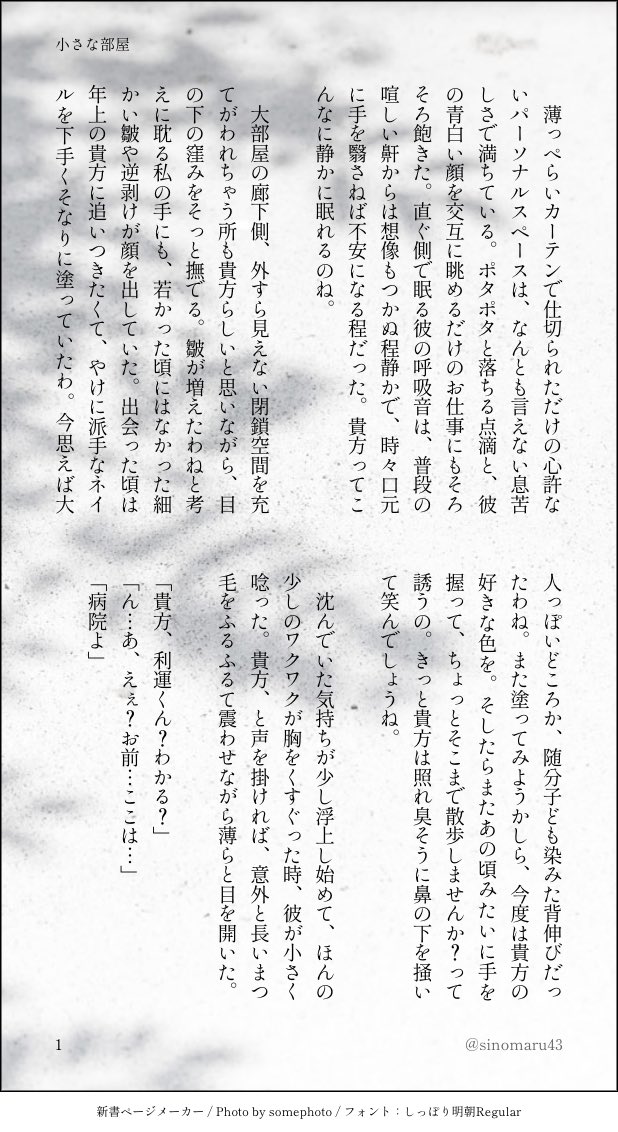 小さな部屋
薄っぺらいカーテンで仕切られただけの心許な
いパーソナルスペースは、なんとも言えない息苦
しさで満ちている。ポタポタと落ちる点滴と、彼
の青白い顔を交互に眺めるだけのお仕事にもそろ
そろ飽きた。直ぐ側で眠る彼の呼吸音は、普段の
喧しい鼾からは想像もつかぬ程静かで、時々口元
に手を翳さねば不安になる程だった。貴方ってこ
んなに静かに眠れるのね。
大部屋の廊下側、外すら見えない閉鎖空間を充
てがわれちゃう所も貴方らしいと思いながら、目
の下の窪みをそっと撫でる。皺が増えたわねと考
えに耽る私の手にも、若かった頃にはなかった細
かい皺や逆剥けが顔を出していた。出会った頃は
年上の貴方に追いつきたくて、やけに派手なネイ
ルを下手くそなりに塗っていたわ。今思えば大
人っぽいどころか、随分子ども染みた背伸びだっ
たわね。また塗ってみようかしら、今度は貴方の
好きな色を。そしたらまたあの頃みたいに手を
握って、ちょっとそこまで散歩しませんか？って
誘うの。きっと貴方は照れ臭そうに鼻の下を掻い
て笑んでしょうね。
沈んでいた気持ちが少し浮上し始めて、ほんの
少しのワクワクが胸をくすぐった時、彼が小さく
唸った。貴方、と声を掛ければ、意外と長いまつ
毛をふるふるて震わせながら薄らと目を開いた。
「貴方、利運くん？わかる？」
「ん…あ、えぇ？お前…ここは…」
「病院よ」
1
@sinomaru43
新書ページメーカー / Photo by somephoto / フォント：しっぽり明朝Regular